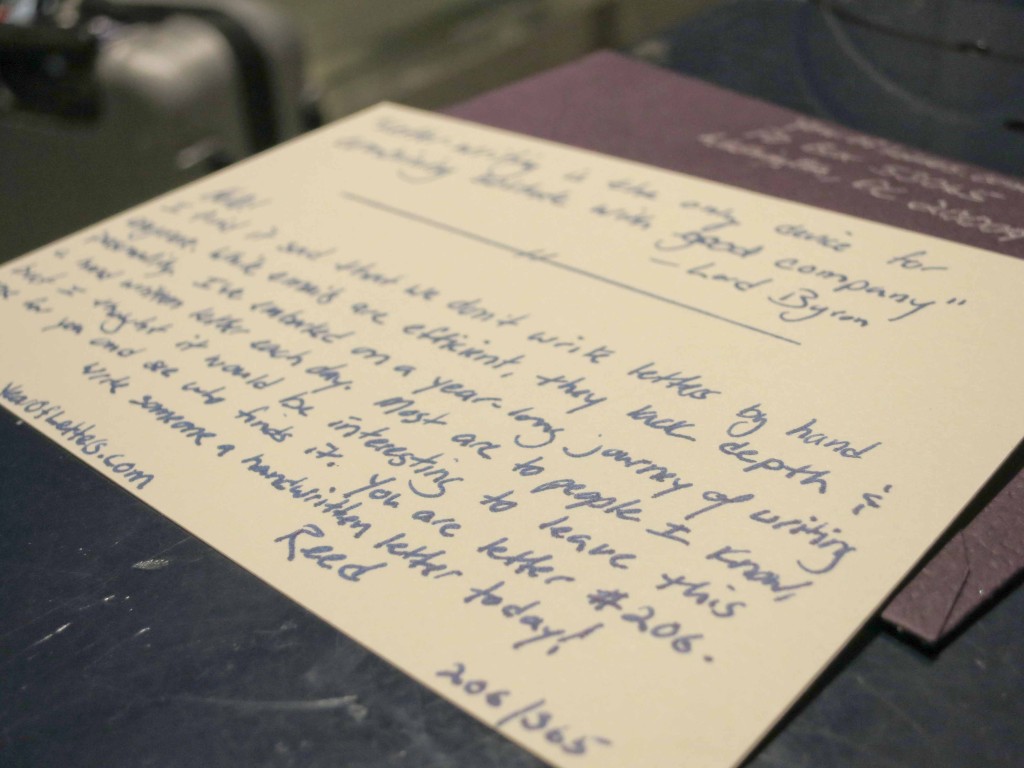 "Letter writing is the only device for
combining solitude with good company"
- Lord Byron
Hello!
I find it sad that we don't write letters by hand
anymore. While emails are efficient, they lack depth &
personality. I've embarked on a year-long journey of writing
a hand written letter each day. Most are to people I know,
but I thought it would be interesting to leave this
one for you and see who finds it. You are letter #206.
Write someone a handwritten letter today!
Reed
YearOfLetters.com
206/365
PO Box 53065
Washington, DC 20009